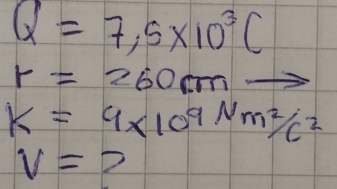 Q = 7,5×10³ C
r = 260cm →
K = 9×10⁹ Nm²/C²
V = ?